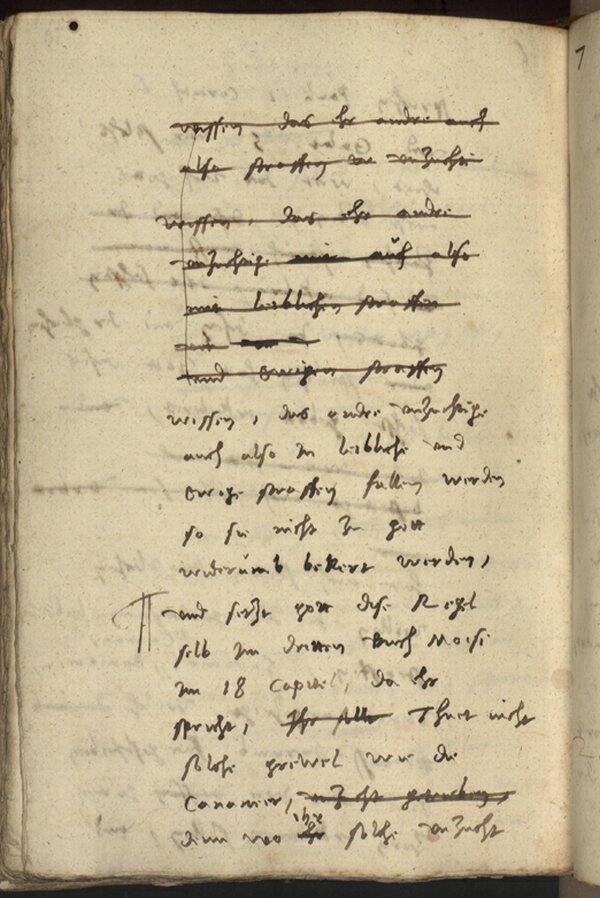 wissen das ehr andre auch
also straffen unzucht
wissen, das ehr andre
unzuchtige auch also
mit leiblichen straffen
und ewigen straffen
wissen, das andre unzuchtige
auch also in leibliche und
ewige straffen fallen werden
so sie nicht zu gott
widerumb bekert werden,
und setzt gott dise Regel
selb im dritten buch Moisi
im 18 Capitel, da ehr
spricht, Ihr sollt Thuet nicht
solche grewel wie die
Cananier, unzucht getrieben,
denn wo ihr ehr solche unzucht
7